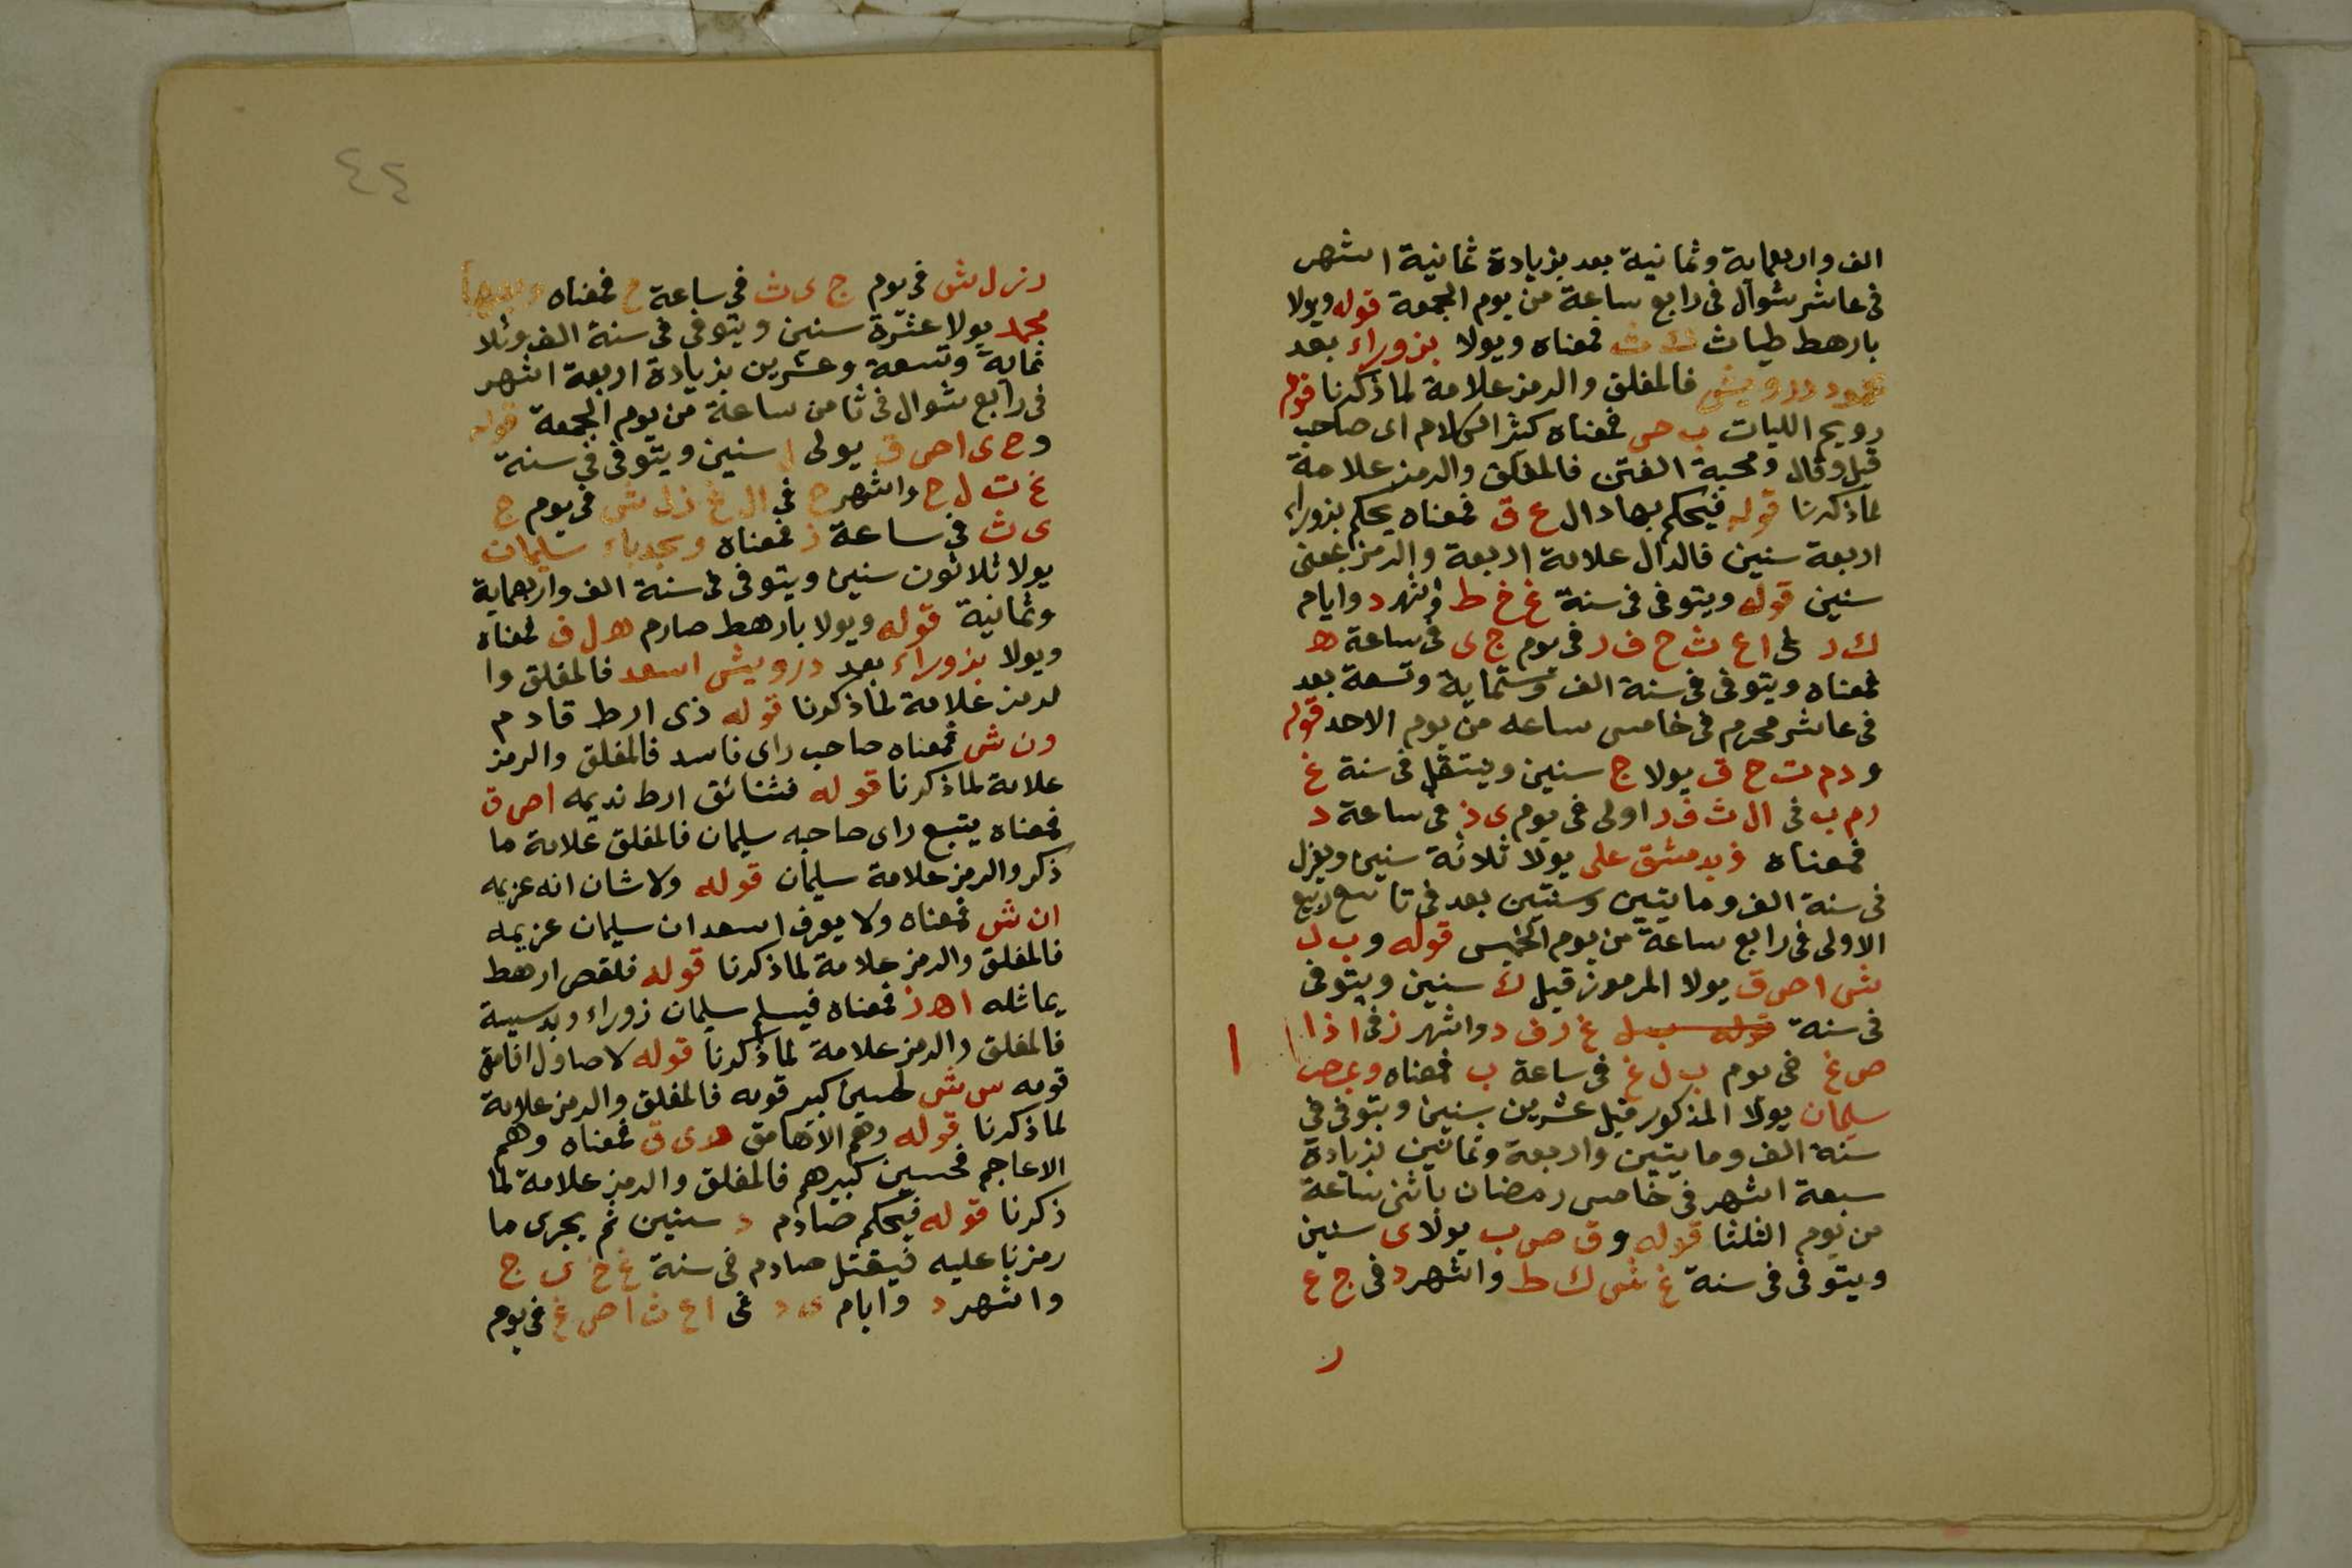 الف واربعماية وثمانية بعد بزيادة ثمانية اشهر
فى عاشر شوال فى رابع ساعة من يوم الجمعة قوله ويولا
بارهط طياث ث فمعناه ويولا بزوراء بعد
درويش فالمغلق والرمز علامة لما ذكرنا قوله
رويم الليات ب حى فمعناه كثير الكلام اى صاحب
قيل وقال ومحبة الفتن فالمغلق والرمز علامة
لما ذكرنا قوله فيحكم بهاد ال ع ق فمعناه يحكم بزوراء
اربعة سنين فالدال علامة اربعة والرمز بمعنى
سنين قوله ويتوفى فى سنة غ خ ط واشهر د وايام
ك د فى ا ع ث ح ف ر فى يوم ج ى فى ساعة ه
فمعناه ويتوفى فى سنة الف وستماية وتسعة بعد
فى عاشر محرم فى خامس ساعه من يوم الاحد قوله
و دم ت ح ق يولا ج سنين وينتقل فى سنة غ
ر م ب فى ال ث ف ر اولى فى يوم ى ذ فى ساعة د
فمعناه وبدمشق على يولا ثلاثة سنين ويعزل
فى سنة الف ومايتين وسنتين بعد فى تاسع ربيع
الاولى فى رابع ساعة من يوم الخميس قوله و ب ل
ش ا ص ق يولا المرموز قبل ك سنين ويتوفى
فى سنة قوله غ ر ف د واشهر ز فى ا ذ ا
ص غ فى يوم ب ل غ فى ساعة ب فمعناه وبمصر
سليمان يولا المذكور قبل عشرين سنين ويتوفى فى
سنة الف ومايتين واربعة وثمانين بزيادة
سبعة اشهر فى خامس رمضان باثنى ساعة
من يوم الثلثا قوله و ق ص ب يولا ى سنين
ويتوفى فى سنة غ ش ك ط واشهر د فى ج ع
ر
٤٤
د ز ل ش فى يوم ج ى ث فى ساعة ح فمعناه
محمد يولا عشرة سنين ويتوفى فى سنة الف وثلا
ثماية وتسعة وعشرين بزيادة اربعة اشهر
فى رابع شوال فى ثامن ساعة من يوم الجمعة قوله
و ح ى ا ص ق يولى ل سنين ويتوفى فى سنة
غ ت ل ح واشهر ح فى ال غ ز ل ش فى يوم ج
ى ث فى ساعة ز فمعناه سليمان
يولا ثلاثون سنين ويتوفى فى سنة الف واربعماية
وثمانية قوله ويولا بارهط صارم ه ل ق فمعناه
ويولا بزوراء بعد درويش اسعد فالمغلق وا
لرمز علامة لما ذكرنا قوله ذى ارط قادم
ون ش فمعناه صاحب راى فاسد فالمغلق والرمز
علامة لما ذكرنا قوله ارط نديمه ا ص ق
فمعناه يتبع راى صاحبه سليمان فالمغلق علامة ما
ذكر والرمز علامة سليمان قوله ولا شان انه عزيمه
ان ش فمعناه ولا يعرف اسعد ان سليمان عزيمه
فالمغلق والرمز علامة لما ذكرنا قوله فلقص ارهط
يماثله ا ه ز فمعناه فيسلم سليمان زوراء وبدسيسة
فالمغلق والرمز علامة لما ذكرنا قوله لاصاول افامق
قومه س ش لحسين كبير قومه فالمغلق والرمز علامة
لما ذكرنا قوله وهم الافهامق ه ى ق فمعناه وهم
الاعاجم فحسين كبيرهم فالمغلق والرمز علامة لما
ذكرنا قوله فيحكم صارم د سنين ثم يجرى ما
رمزنا عليه فيقتل صارم فى سنة غ خ ى ج
واشهر د وايام ى د فى ا ع ث ا ص غ فى يوم